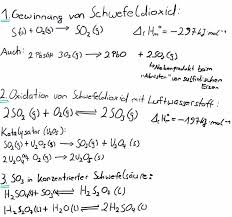 1. Gewinnung von Schwefeldioxid:
S(s) + O₂(g) ⟶ SO₂(g) ΔᵣHₘ° = -297 kJ·mol⁻¹
Auch: 2 PbS 3O₂(g) ⟶ 2PbO + 2SO₂(g)
Nebenprodukt beim
"Abrösten" von sulfidischen
Erzen
2. Oxidation von Schwefeldioxid mit Luftwasserstoff:
2SO₂(g) + O₂(g) ⇌ 2SO₃(g) ΔᵣHₘ° = -197 kJ·mol⁻¹
Katalysator (V₂O₅):
SO₂(g) + V₂O₅(s) ⟶ SO₃(g) + V₂O₄(s)
2V₂O₄ O₂(g) ⟶ 2V₂O₅(s)
3. SO₃ in konzentrierter Schwefelsäure:
H₂SO₄ + SO₃ ⇌ H₂S₂O₇(l)
H₂S₂O₇(l) + H₂O(l) ⟶ 2H₂SO₄(l)